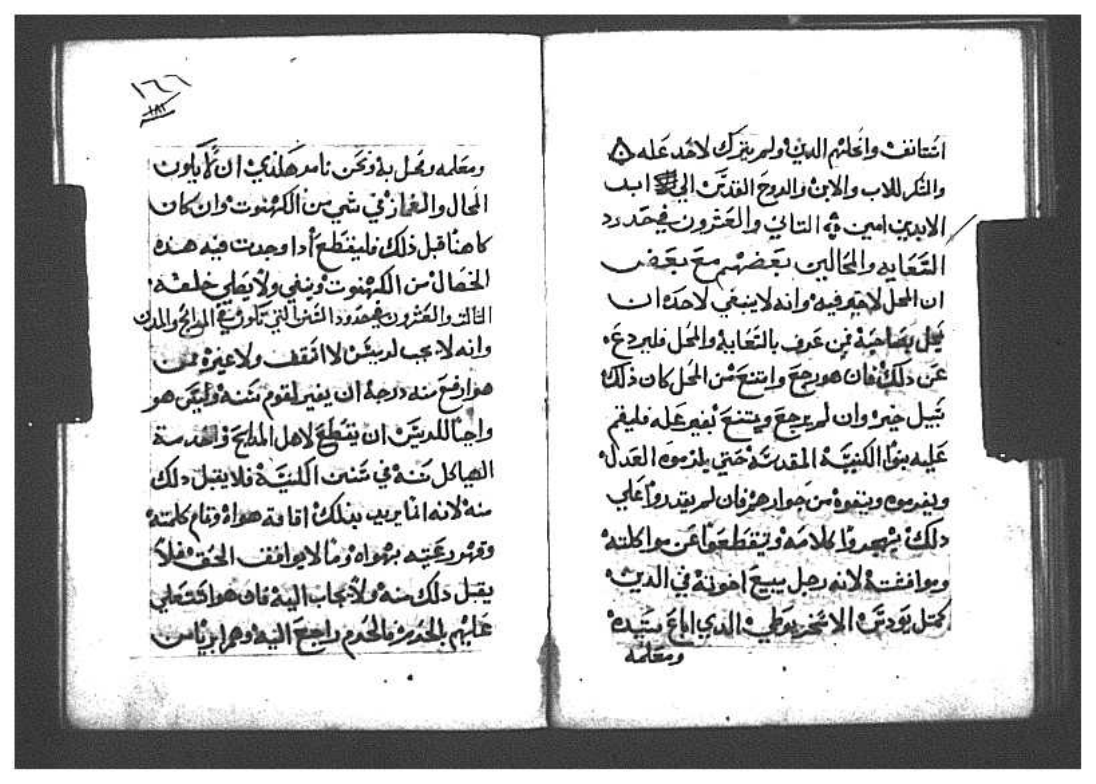 اشتانف وانحلتهم الدين ولم يترك لاحد عله
والشكر للاب والابن والروح القدس الي ابد
الابدين امين التاني والعشرون في حدود
السعايه والمحالين بعضهم مع بعض
ان المحل لا خير فيه وانه لا ينبغي لاحد ان
يمحل بصاحبه فمن عرف بالسعايه والمحل فليردع
عن ذلك فان هو رجع وامتنع من المحل كان ذلك
سبيل خير وان لم يرجع ويمتنع بغير عله فليقم
عليه بنوا الكنيسه المقدسه حتي يلزموه العدل
ويغرموه وينفوه من جوارهم فان لم يقدروا علي
ذلك يهجروا كلامه وينقطعوا عن مواكلته
وموافقته لانه رجل يبيع اخوته في الدين
كمتل يودس الاسخريوطي الدي اباع سيده
ومعلمه
١٦٦
١٨١
ومعلمه ومحل به ونحن نامر هكذي ان لا يكون
المحال والغماز في شي من الكهنوت وان كان
كاهنا قبل ذلك فليقطع ادا وجدت فيه هده
الخصال من الكهنوت وينفي ولا يصلي خلفه
التالت والعشرون في حدود السنن التي تكون في المدابح والمدن
وانه لا يجب لقسيس لا اسقف ولا غيره ممن
هو ارفع منه درجه ان يغير لقوم سنه وليس هو
واجبا للقسيس ان يقطع لاهل المدابح وخدمة
الهياكل سنه في سنن الكنيسه فلا يقبل دلك
منه لانه انما يريد بدلك اقامة هواه وتمام كلمته
وقهر رعيته بهواه وما لا يوافق الحق فلا
يقبل دلك منه ولا يجاب اليه فان هو افتعلي
عليهم بالحرم فالحرم راجع اليه وهم ابرياس